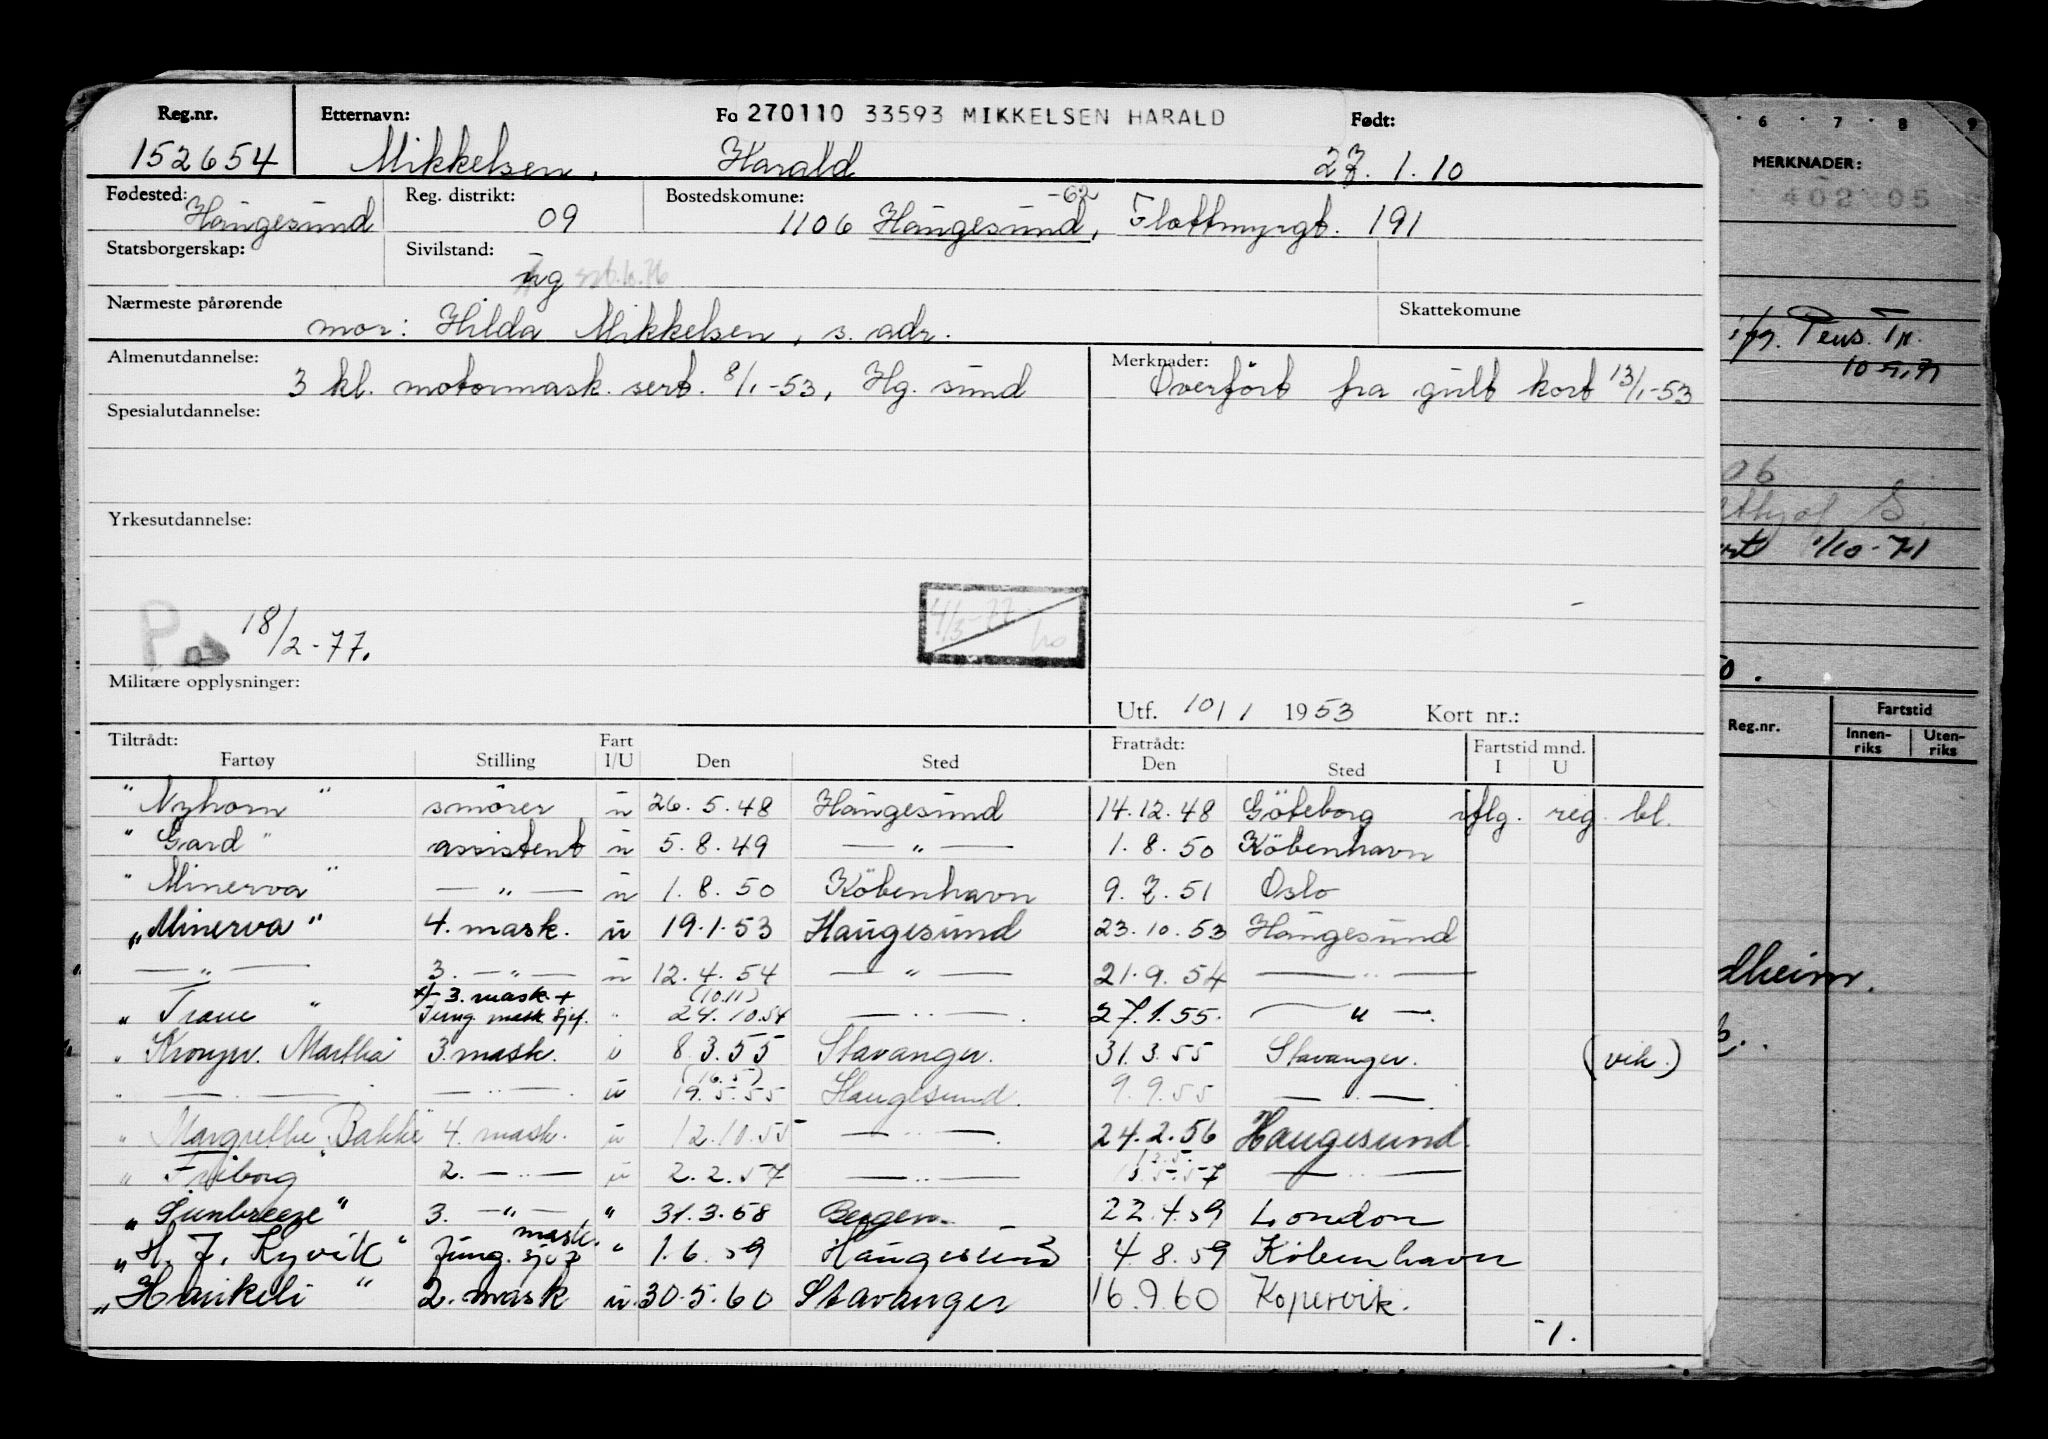 Reg.nr. Etternavn: Fo 270110 33593 MIKKELSEN HARALD Født:
152654 Mikkelsen, Harald 27. 1. 10
Fødested: Haugesund Reg. distrikt: 09 Bostedskomune: 1106 Haugesund, -62 Flottmyrgt. 191
Statsborgerskap: Sivilstand: ug
Nærmeste pårørende mor: Hilda Mikkelsen, s. adr. Skattekomune
Almenutdannelse: 3 kl. motormask. sert. 8/1-53, Hg. sund Merknader: Overført fra gult kort 13/1-53
Spesialutdannelse:
Yrkesutdannelse:
18/2-77.
Militære opplysninger:
Utf. 10/1 1953 Kort nr.:
Tiltrådt: Fart Fratrådt: Fartstid mnd.
Fartøy Stilling I/U Den Sted Den Sted I U
"Nyhorn" smører u 26. 5. 48 Haugesund 14. 12. 48 Göteborg iflg. reg. bl.
"Gard" assistent u 5. 8. 49 — " — 1. 8. 50 København
"Minerva" — " — u 1. 8. 50 København 9. 7. 51 Oslo
"Minerva" 4. mask. u 19.1.53 Haugesund 23. 10. 53 Haugesund
— " — 3. — " — u 12. 4. 54 — " — 21. 9. 54 — " —
3. mask. + (10.11)
"Trane" Fung. mask. sjef. " 24. 10. 54 — " — 27. 1. 55. — " —
" Kronpr. Martha 3. mask. u 8. 3. 55 Stavanger. 31. 3. 55 Stavanger. (vik.)
(16.5)
" — " — — " — u 19. 5. 55 Haugesund. 9. 9. 55 — " —
" Margrethe Bakke 4. mask. u 12. 10. 55 — " — 24. 2. 56 Haugesund.
" Friborg" 2. — " — u 2. 2. 57 — " — 13. 5. 57 — " —
"Sunbreeze" 3. — " — " 31. 3. 58 Bergen. 22. 4. 59 London
"H. J. Kyvik" Fung. mask. sjef " 1. 6. 59 Haugesund 4. 8. 59 København
"Haukeli" 2. mask u. 30. 5. 60 Stavanger 16. 9. 60 Kopervik.
-1.
6 7 8 9
MERKNADER:
402 05
Pens. Tr.
06
1/10-71
Reg.nr. Fartstid
Innen-
riks Uten-
riks
dheim.